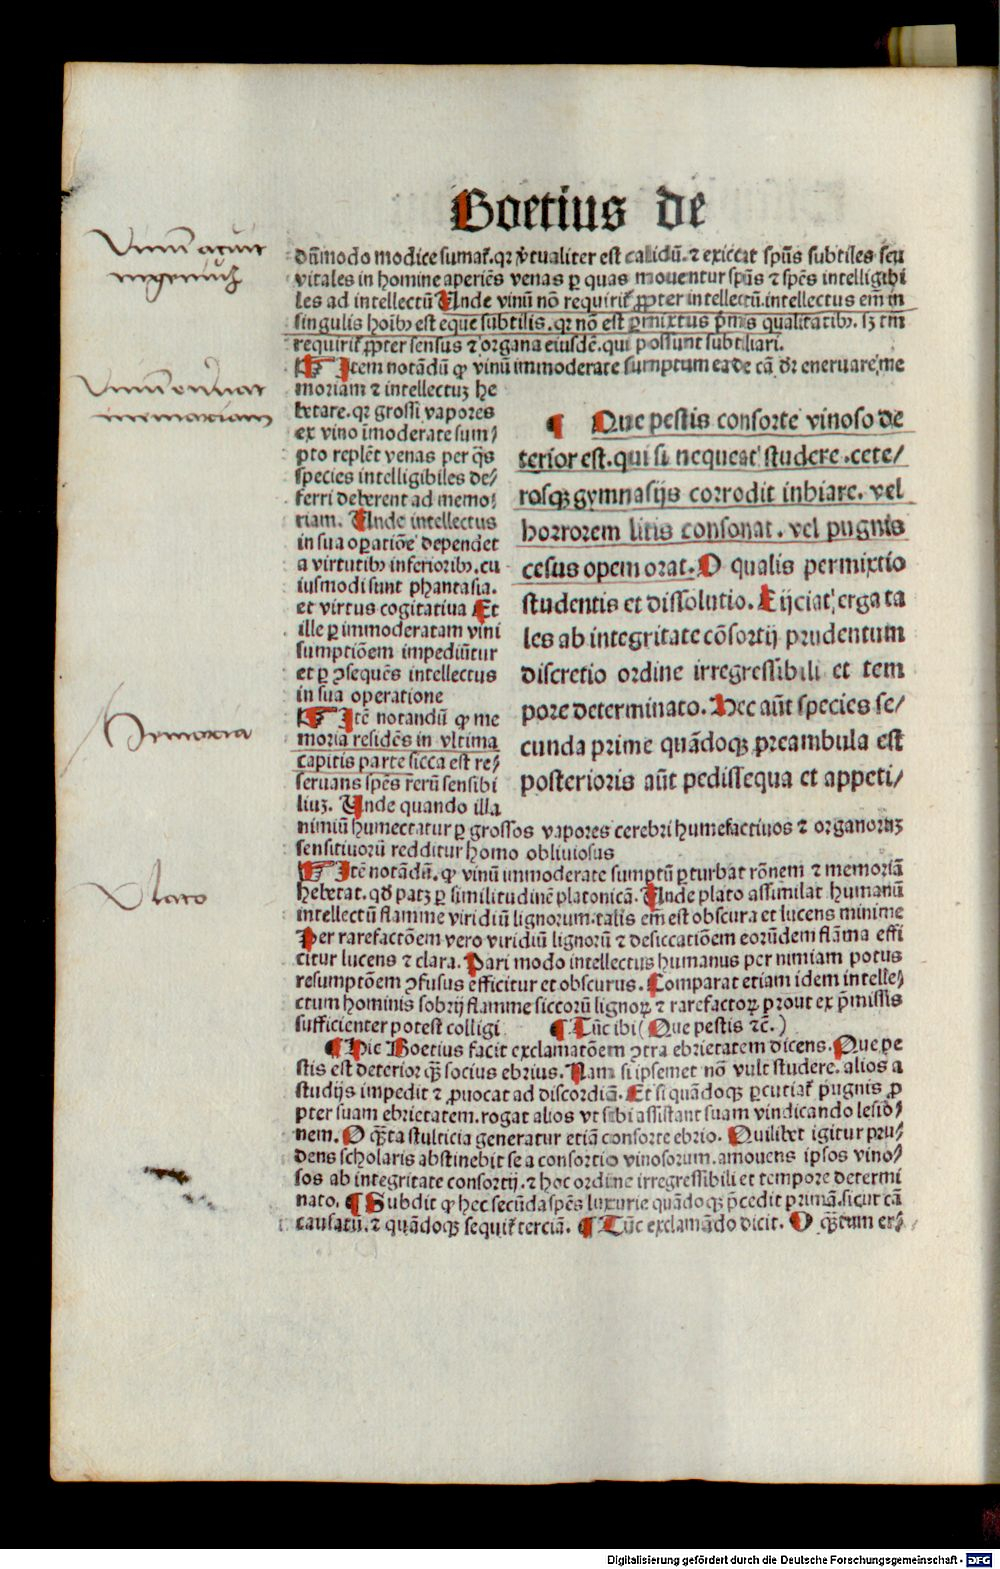 Boetius de
dūmodo modice sumat᷑. qꝛ v̓tualiter est calidū. ⁊ excitat spūs subtiles seu
vitales in homine aperiēs venas ꝑ quas mouentur spūs ⁊ spēs intelligibi
les ad intellectū Unde vinū nō requirit᷑ ꝓpter intellectū. intellectus em̄ in
singulis hoībꝫ est eque subtilis. qꝛ nō est ꝑmixtus pꝛimis qualitatibꝫ. sꝫ tm̄
requirit᷑ ꝓpter sensus ⁊ organa eiusdē. qui possunt subtiliari.
¶ Item notādū ꝙ vinū immoderate sumptum eadē cā dꝛ eneruare me
moriam ⁊ intellectuꝫ he
betare. qꝛ grossi vapores
ex vino īmoderate sum⸗
pto replēt venas per q̄s
species intelligibiles de⸗
ferri deberent ad memo⸗
riam. Unde intellectus
in sua oꝑatiōe dependet
a virtutibꝫ inferioribꝫ. cu
iusmodi sunt phantasia.
et virtus cogitatiua Et
ille ꝑ immoderatam vini
sumptiōem impediūtur
et ꝑ ꝯsequēs intellectus
in sua operatione
¶ Itē notandū ꝙ me
moria residēs in vltima
capitis parte sicca est re⸗
seruans spēs rerū sensibi
liuꝫ. Unde quando illa
¶ Que pestis consorte vinoso de
terior est. qui si nequeat studere. cete⸗
rosqꝫ gymnasijs corrodit inhiare. vel
horrorem litis consonat. vel pugnis
cesus opem orat. O qualis permixtio
studentis et dissolutio. Eijciat᷑ erga ta
les ab integritate cōsortij prudentum
discretio ordine irregressibili et tem
pore determinato. Hec aūt species se⸗
cunda prime quādoqꝫ preambula est
posterioris aūt pedissequa et appeti⸗
nimiū humectatur ꝑ grossos vapores cerebri humefactiuos ⁊ organoruꝫ
sensitiuorū redditur homo obliuiosus
¶ Itē notādū. ꝙ vinū immoderate sumptū ꝑturbat rōnem ⁊ memoriā
hebetat. qd̄ patꝫ ꝑ similitudinē platonicā. Unde plato assimilat humanū
intellectū flamme viridiū lignorum. talis em̄ est obscura et lucens minime
Per rarefactōem vero viridiū lignorū ⁊ desiccatiōem eorūdem flāma effi
citur lucens ⁊ clara. Pari modo intellectus humanus per nimiam potus
resumptōem ꝯfusus efficitur et obscurus. Comparat etiam idem intelle⸗
ctum hominis sobrij flamme siccorū lignoꝝ ⁊ rarefactoꝝ prout ex p̄missis
sufficienter potest colligi ¶ Tūc ibi (Que pestis ⁊c̄.)
¶ Hic Boetius facit exclamatōem ꝯtra ebrietatem dicens. Que pe
stis est deterior qꝫ̄ socius ebrius. Nam si ipsemet nō vult studere. alios a
studijs impedit ⁊ ꝓuocat ad discordiā. Et si quādoqꝫ ꝑcutiat᷑ pugnis ꝓ
pter suam ebrietatem. rogat alios vt sibi assistant suam vindicando lesio⸗
nem. O qꝫ̄ta stulticia generatur etiā consorte ebrio. Quilibet igitur pru⸗
dens scholaris abstinebit se a consortio vinosorum. amouens ipsos vino⸗
sos ab integritate consortij. ⁊ hoc ordine irregressibili et tempore determi
nato. ¶ Subdit ꝙ hec secūda spēs luxurie quādoqꝫ p̄cedit primā. sicut cā
causatū. ⁊ quādoqꝫ sequit᷑ terciā. ¶ Tūc exclamādo dicit. O qꝫ̄tum er⸗
Vinū acuit
ingeniuꝫ
Vinū eneruat
memoriam
Memoria
Plato
Digitalisierung gefördert durch die Deutsche Forschungsgemeinschaft - DFG